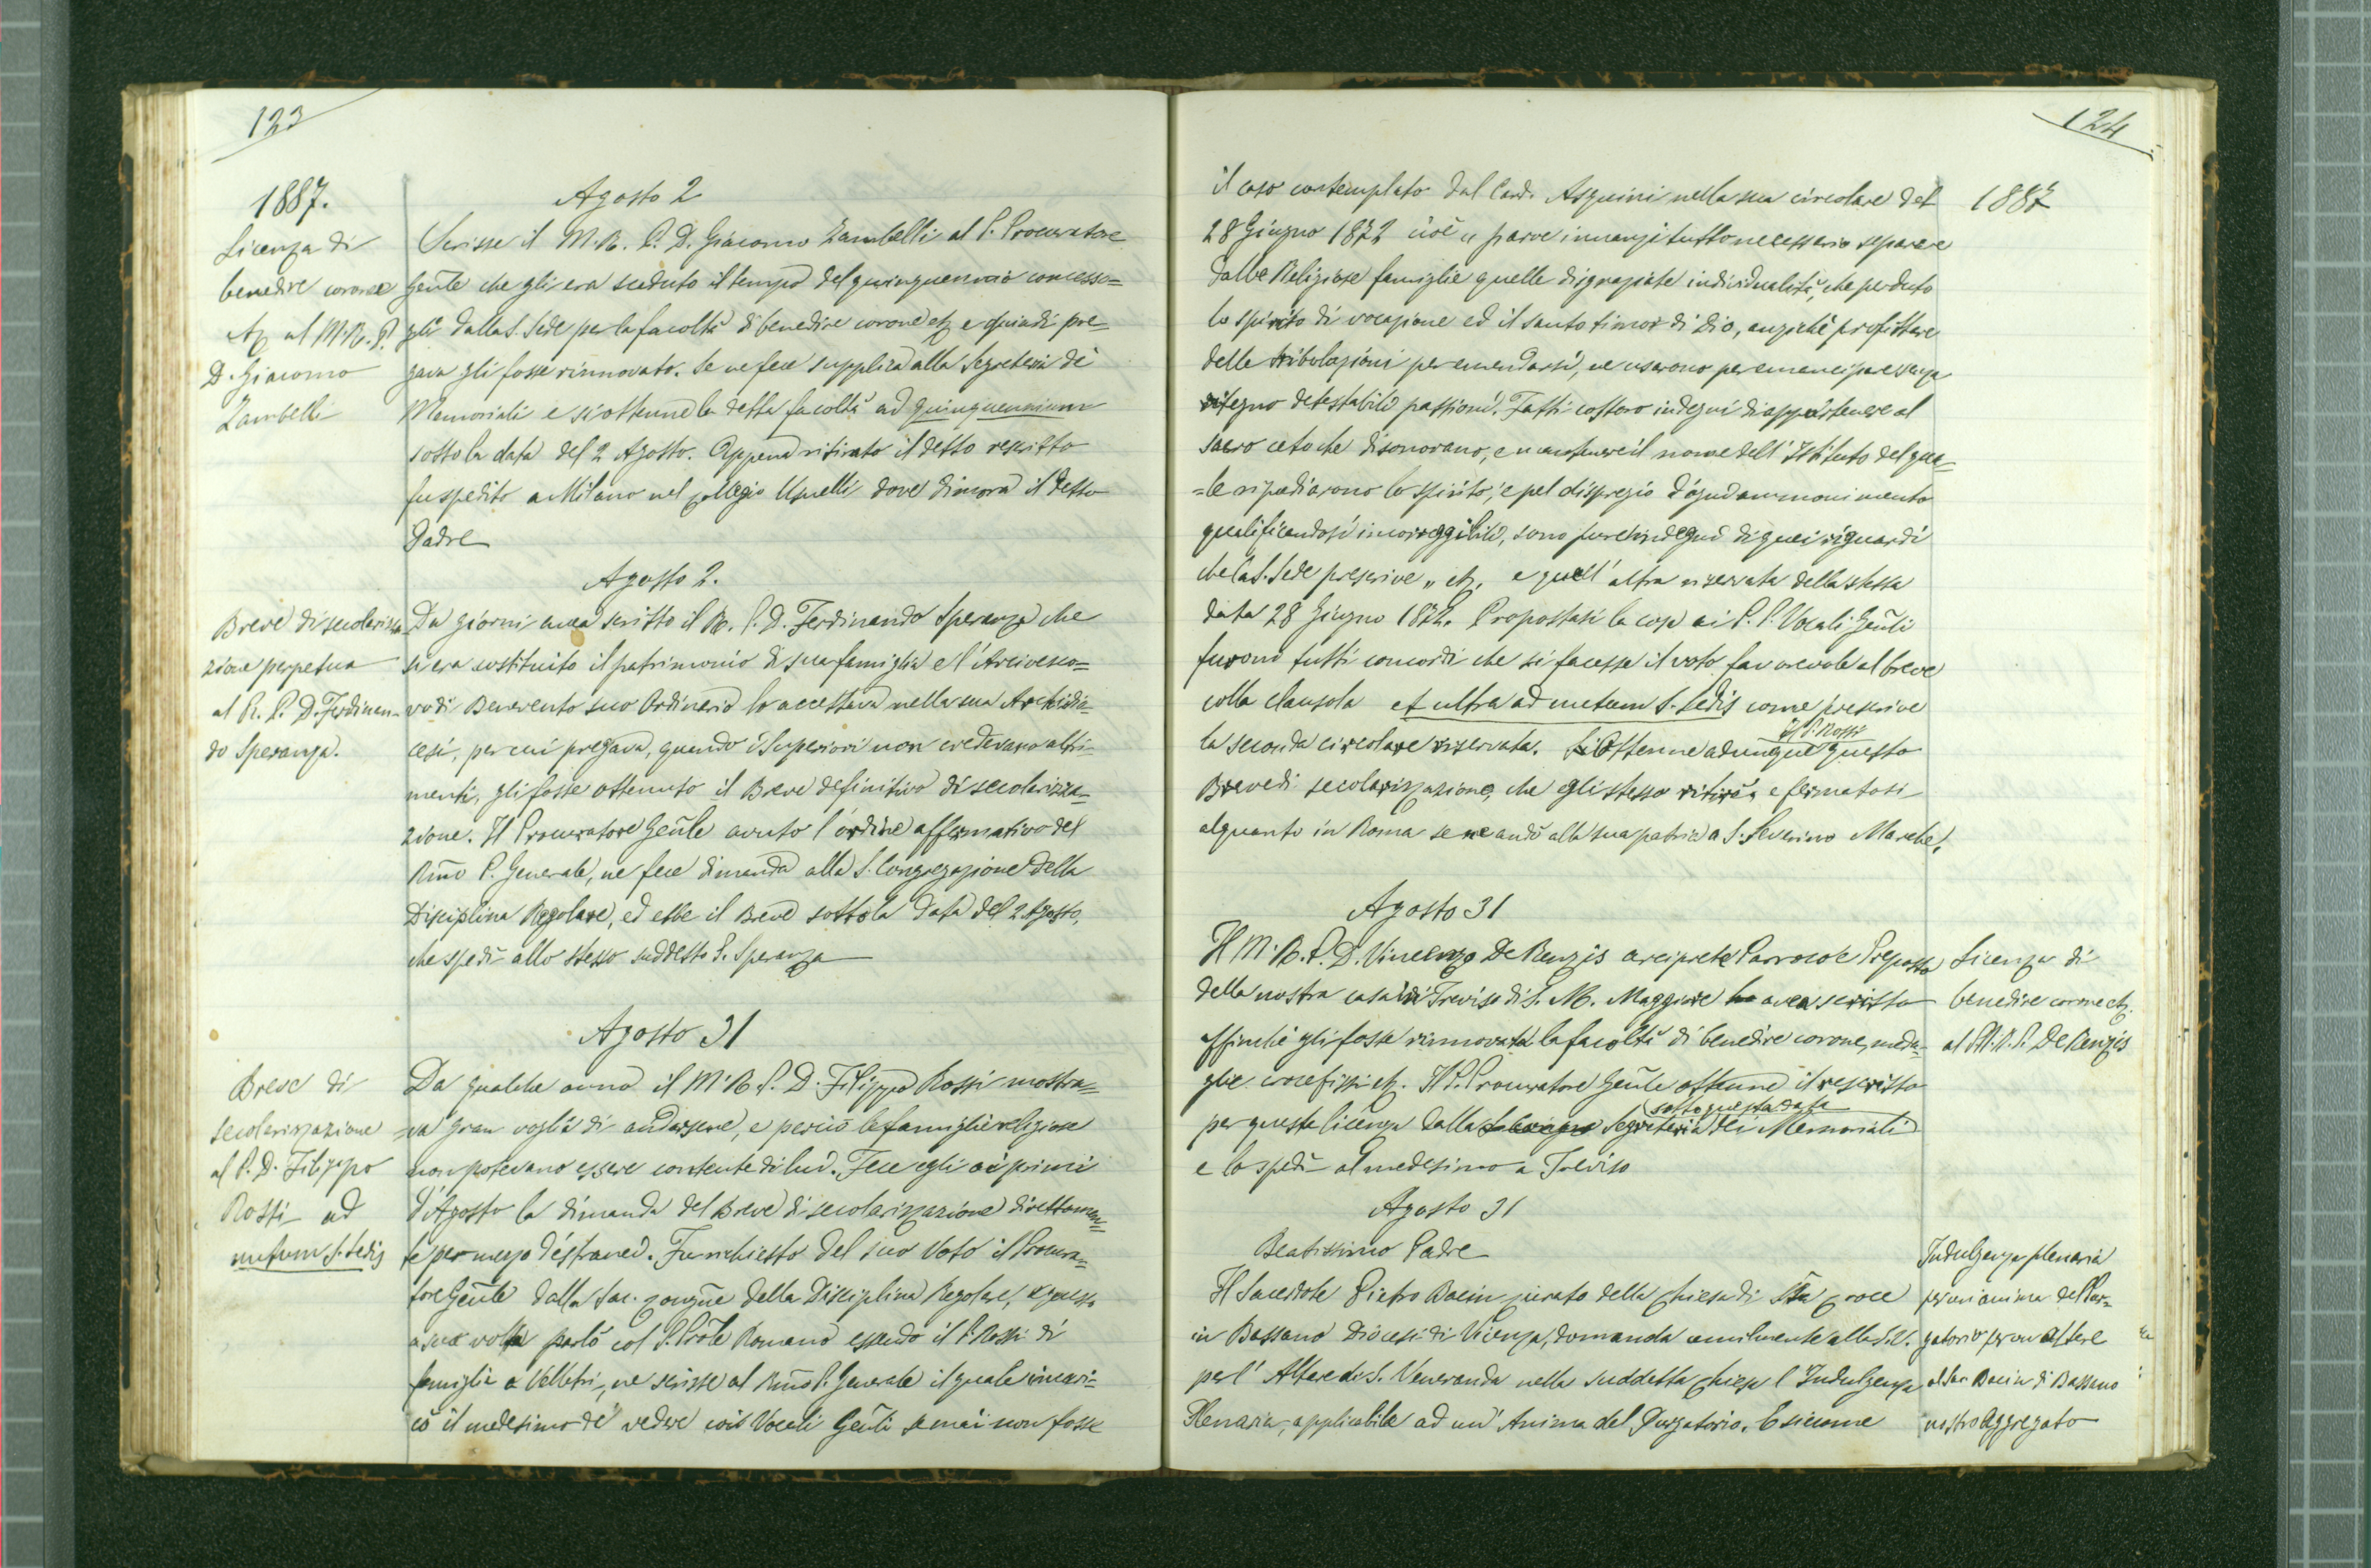 123
1887.
Licenza di
benedire corone
etz al M.R.P.
D. Giacomo
Zambelli
Agosto 2
Scrisse il M.R. P. D. Giacomo Zambelli al P. Procuratore
Gen̄le che gli era scaduto il tempo del quinquennio concesso=
gli dalla S. Sede per la facoltà di benedire corone etz e quindi pre=
gava gli fosse rinnovato. Se ne fece supplica alla Segreteria dè
Memoriali e si ottenne la detta facoltà ad quinquennium
sotto la data del 2 Agosto. Appena ritirato il detto rescritto
fu spedito a Milano nel collegio Usuelli dove dimora il detto
Padre
Agosto 2.
Breve di secolarizza
zione perpetua
al R. P. D. Ferdinan-
do Speranza.
Da giorni avea scritto il R. P. D. Ferdinando Speranza che
si era costituito il patrimonio di sua famiglia e l'Arcivesco=
vo di Benevento suo Ordinario lo accettava nella sua Archidio-
cesi, per cui pregava, quando i Superiori non credevano altri-
menti, gli fosse ottenuto il Breve definitivo di secolarizza=
zione. Il Procuratore Gen̄le avuto l'ordine affermativo del
Rm̄o P. Generale, ne fece dimanda alla S. Congregazione della
Disciplina Regolare, ed ebbe il Breve sotto la data del 2 Agosto,
che spedì allo stesso suddetto P. Speranza
Agosto 31
Breve di
secolarizzazione
al P. D. Filippo
Rossi ad
nutum S. Sedis
Da qualche anno il M.R. P. D. Filippo Rossi mostra=
=va gran voglia di andarsene, e perciò le famiglie religiose
non potevano essere contente di lui. Fece egli ai primi
d'Agosto la dimanda del Breve di secolarizzazione direttamen=
te per mezzo d'estranei. Fu richiesto del suo Voto il Procura=
tore Gen̄le dalla Sac. Congn̄e della Disciplina Regolare, e questo
a sua volta parlò col P. Prōle Romano essendo il P. Rossi di
famiglia a Velletri, ne scrisse al Rm̄o P. Generale il quale incari=
cò il medesimo di vedere coi Vocali Gen̄li se mai non fosse
124
1887
il caso contemplato dal Card. Asquini nella sua circolare del
28 Giugno 1872 cioè „ parve innanzi tutto necessario separare
dalle Religiose famiglie quelle disgraziate individualità, che perduto
lo spirito di vocazione ed il santo timor di Dio, anzichè profittare
delle tribolazioni per emendarsi, ne usarono per emancipare senza
ritegno detestabili passioni. Fatti costoro indegni di appartenere al
sacro ceto che disonorano, e mantenere il nome dell'Istituto del qua=
=le ripudiarono lo spirito, e pel dispregio d'ogni ammonimento
qualificandosi incorreggibili, sono pure indegni di quei riguardi
che la S. Sede prescrive „ etz, e quell'altra riservata della stessa
data 28 Giugno 1872. Propostasi la cosa ai P. P. Vocali Gen̄li
furono tutti concordi che si facesse il voto favorevole al breve
colla clausola et ultra ad nutum S. Sedis come prescrive
il P. Rossi
la seconda circolare riservata. Ottenne adunque questo
Breve di secolarizzazione, che egli stesso ritirò, e fermatosi
alquanto in Roma se ne andò alla sua patria a S. Severino Marche.
Agosto 31
Il M.R. P. D. Vincenzo De Renzis arciprete Parroco e Preposto
della nostra casa di Treviso di S. M. Maggiore avea scritto
affinchè gli fosse rinnovata la facoltà di benedire corone, meda-
glie crocefissi etz. Il P. Procuratore Gen̄le ottenne il rescritto
sotto questa data
per questa licenza dalla Segreteria dei Memoriali
e lo spedì al medesimo a Treviso
Licenza di
benedire corone etz.
al M.R.P. De Renzis
Agosto 31
Beatissimo Padre
Il Sacerdote Pietro Bacin curato della Chiesa di Sta Croce
in Bassano Diocesi di Vicenza, domanda umilmente alla S.V.
per l'Altare di S. Veneranda nella suddetta Chiesa l'Indulgenza
Plenaria, applicabile ad un'Anima del Purgatorio. E siccome
Indulgenza plenaria
per un anima del Pur=
gatorio per un Altare
al Sac. Bacin di Bassano
nostro Aggregato